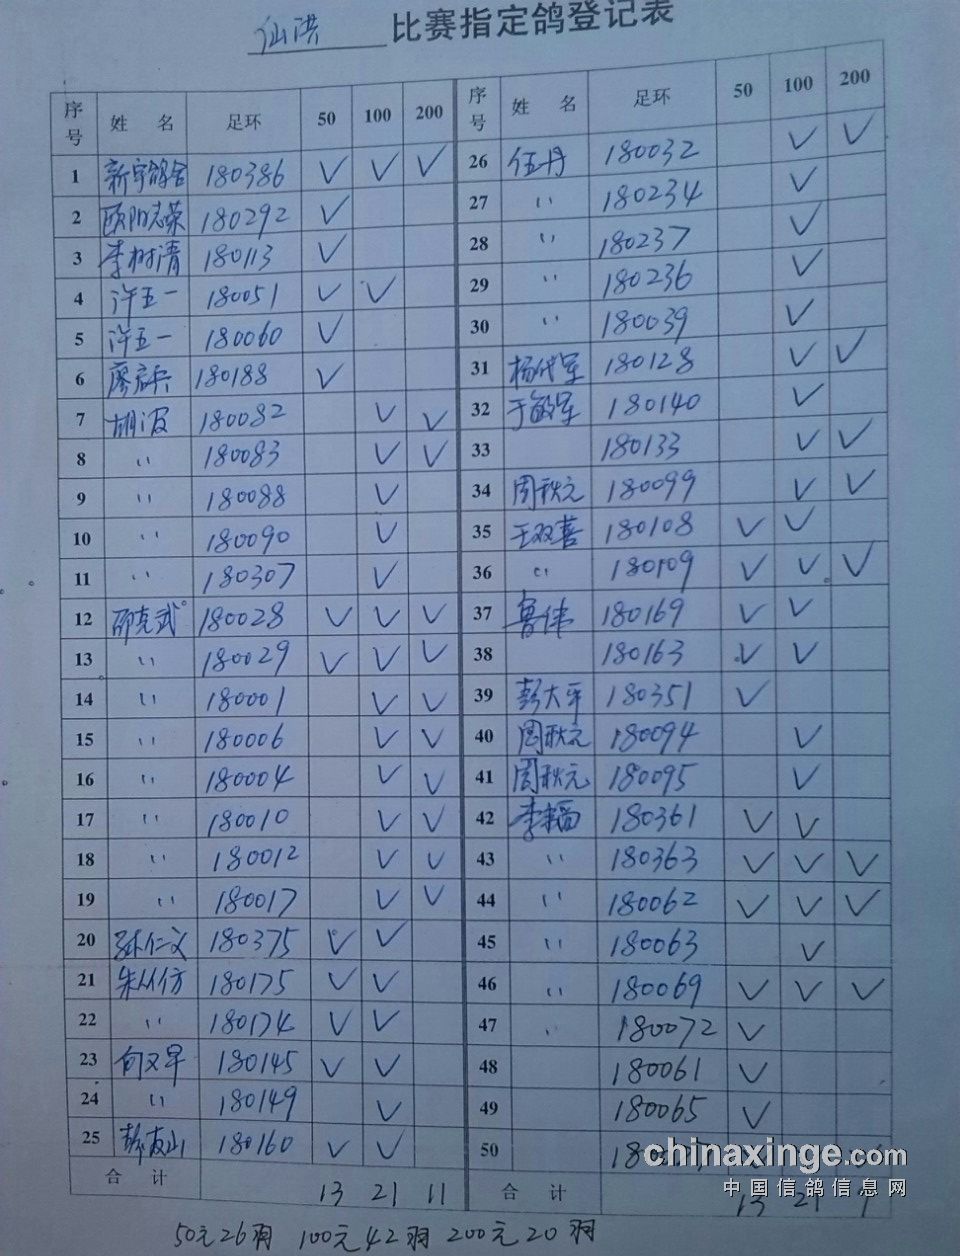 仙洪 比赛指定鸽登记表
序号 姓 名 足环 50 100 200 序号 姓 名 足环 50 100 200
1 新宇鸽舍 180386 ✓ ✓ ✓ 26 伍丹 180032 ✓ ✓
2 欧阳志荣 180292 ✓ 27 〃 180234 ✓
3 李树清 180113 ✓ 28 〃 180237 ✓
4 许五一 180051 ✓ ✓ 29 〃 180236 ✓
5 许五一 180060 ✓ 30 〃 180039 ✓
6 180188 ✓ 31 杨代军 180128 ✓ ✓
7 胡波 180082 ✓ ✓ 32 于敏军 180140 ✓
8 〃 180083 ✓ ✓ 33 180133 ✓ ✓
9 〃 180088 ✓ 34 周秋元 180099 ✓ ✓
10 〃 180090 ✓ 35 王双喜 180108 ✓ ✓
11 〃 180307 ✓ 36 〃 180109 ✓ ✓ ✓
12 邵克武 180028 ✓ ✓ ✓ 37 鲁伟 180169 ✓ ✓
13 〃 180029 ✓ ✓ ✓ 38 180163 ✓ ✓
14 〃 180001 ✓ ✓ 39 彭大平 180351 ✓
15 〃 180006 ✓ ✓ 40 周秋元 180094 ✓
16 〃 180004 ✓ ✓ 41 周秋元 180095 ✓
17 〃 180010 ✓ ✓ 42 180361 ✓ ✓
18 〃 180012 ✓ ✓ 43 〃 180363 ✓ ✓ ✓
19 〃 180017 ✓ ✓ 44 〃 180062 ✓ ✓ ✓
20 孙仁义 180375 ✓ ✓ 45 〃 180063 ✓
21 朱从仿 180175 ✓ ✓ 46 〃 180069 ✓ ✓ ✓
22 〃 180174 ✓ ✓ 47 〃 180072 ✓
23 向又早 180145 ✓ ✓ 48 180061 ✓
24 〃 180149 ✓ 49 180065 ✓
25 彭友山 180160 ✓ ✓ 50
合 计 13 21 11 合 计 13 21
chinaxinge.com
中国信鸽信息网
50元26羽 100元42羽 200元20羽